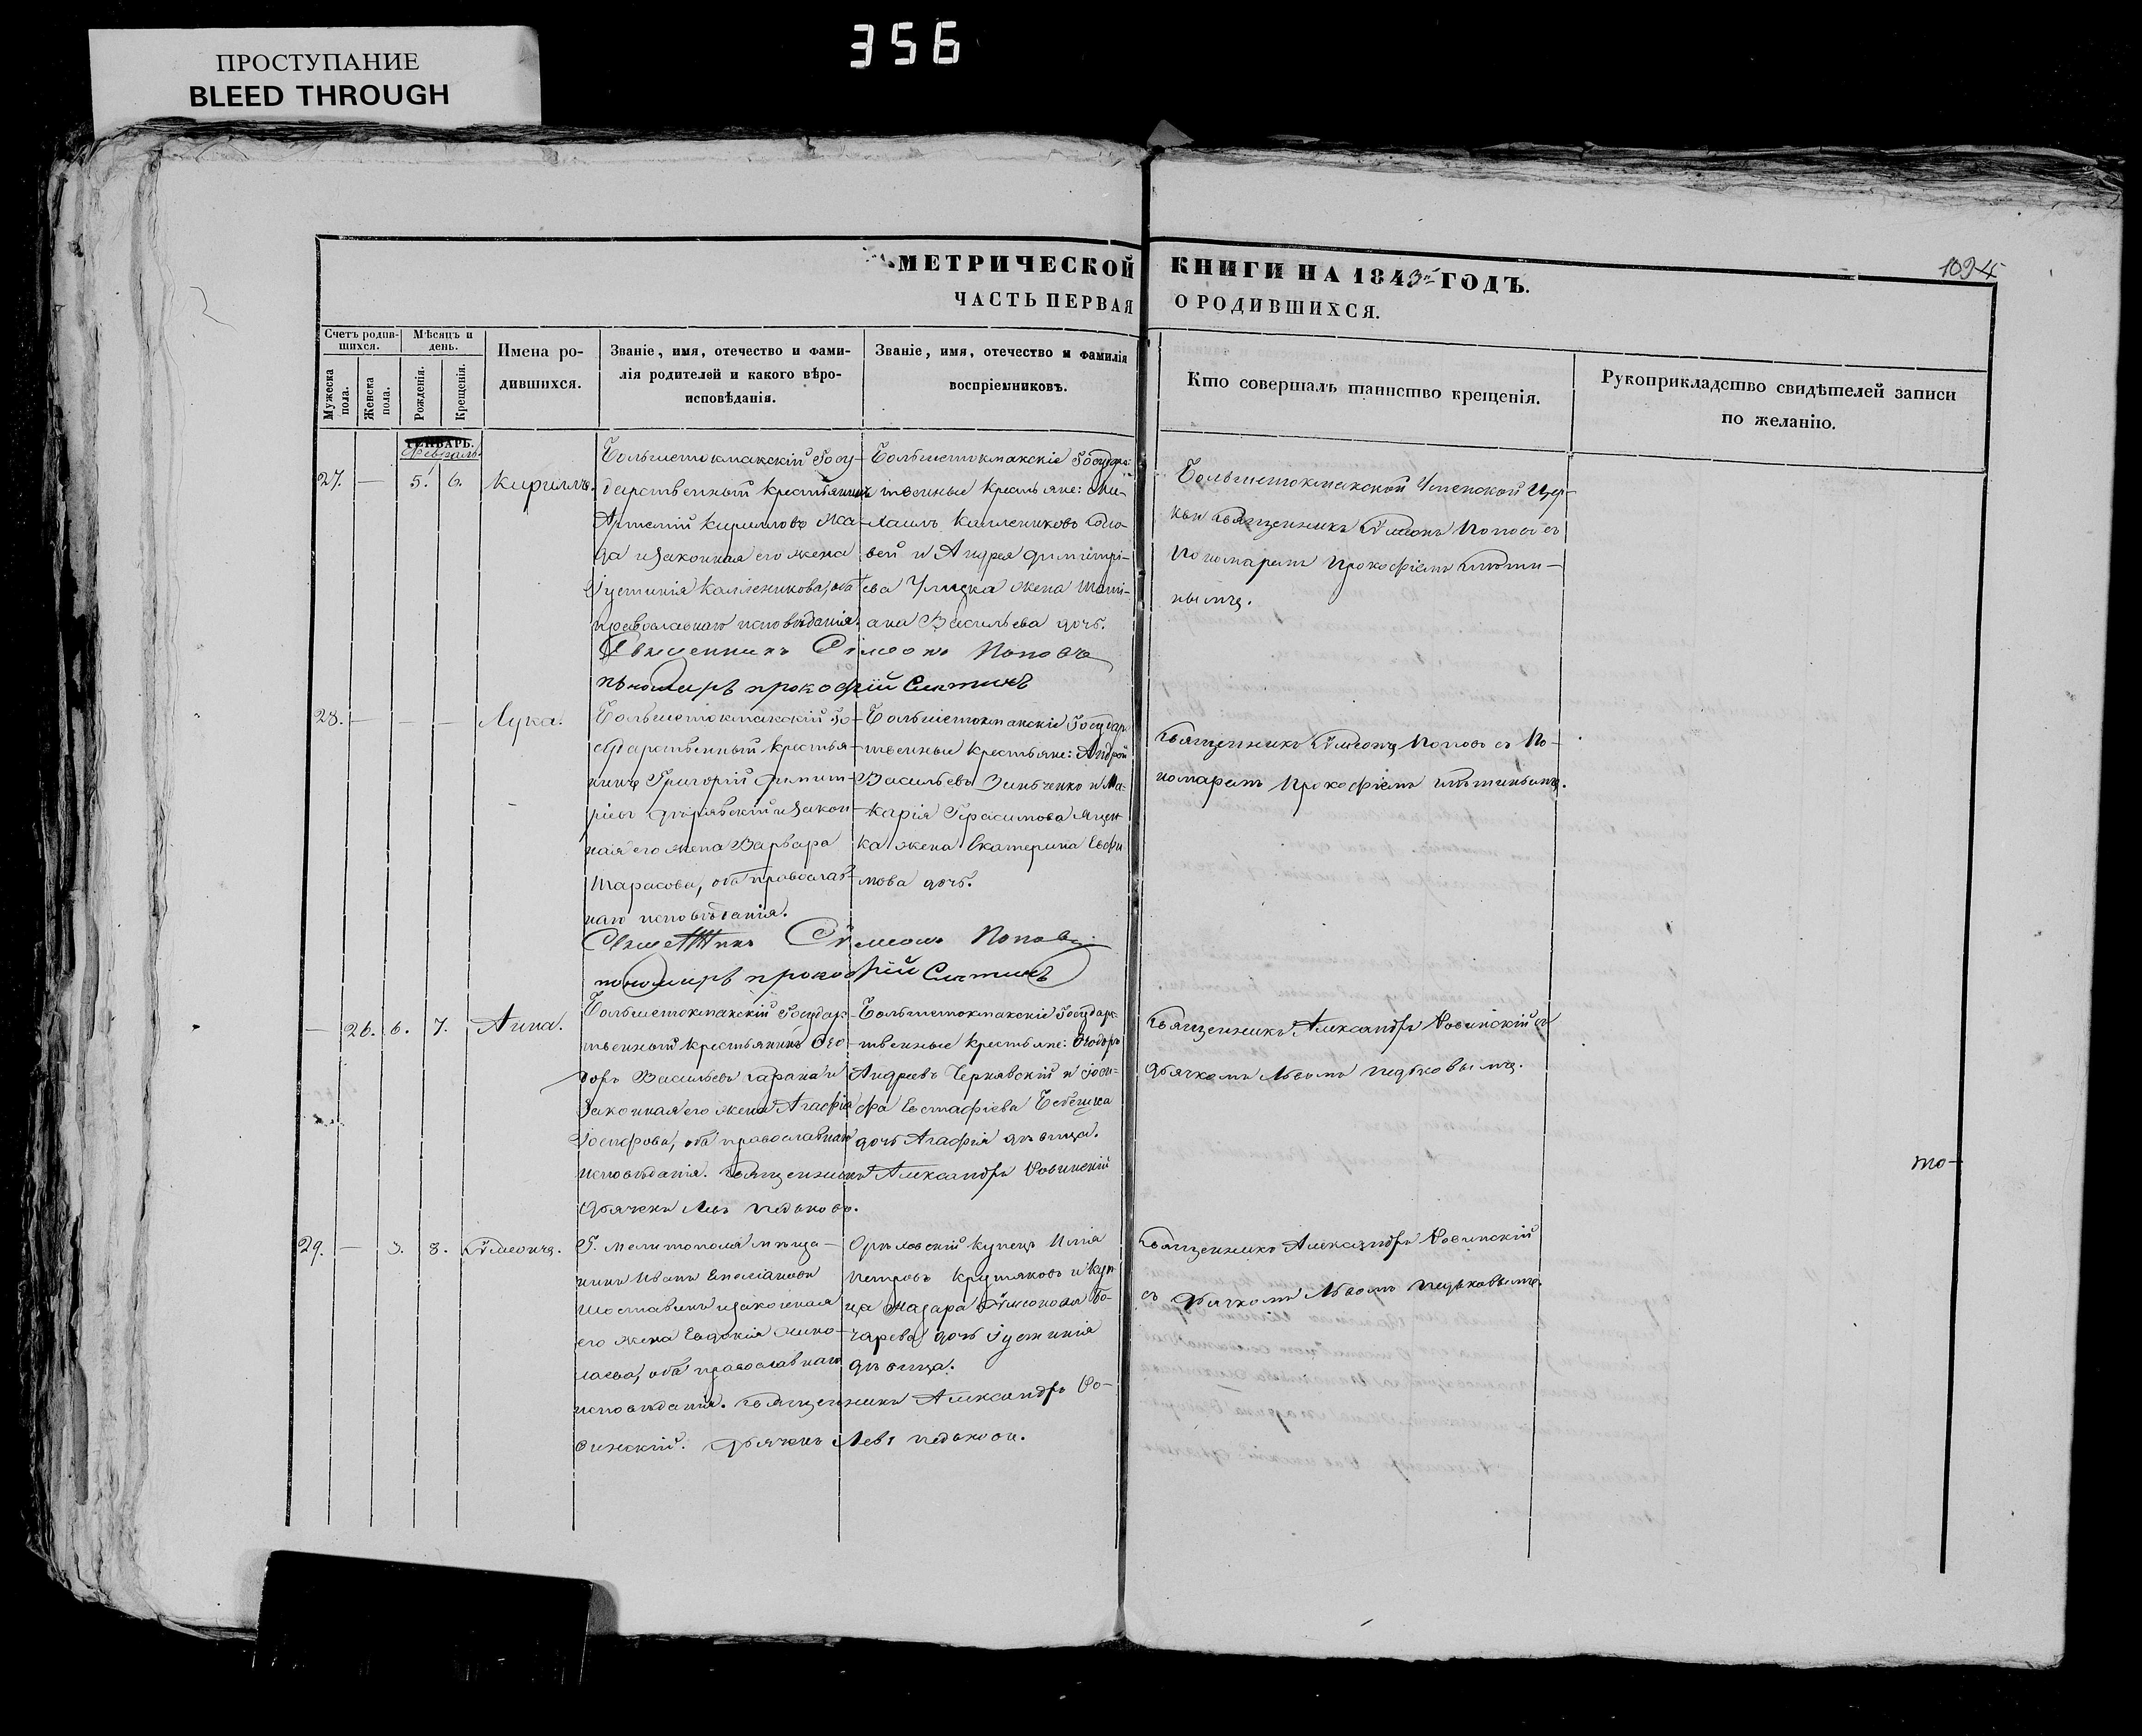 356
ПРОСТУПАНИЕ
BLEED THROUGH
1094
МЕТРИЧЕСКОЙ КНИГИ НА 1843й ГОДЪ.
ЧАСТЬ ПЕРВАЯ О РОДИВШИХСЯ.
Счетъ родившихся.
Мужеска пола.
Женска пола.
Мѣсяцъ и день.
Рожденія.
Крещенія.
Имена родившихся.
Званіе, имя, отечество и фами-
лія родителей и какого вѣро-
исповѣданія.
Званіе, имя, отечество и фамилія
воспріемниковъ.
Кто совершалъ таинство крещенія.
Рукоприкладство свидѣтелей записи
по желанію.
ГЕНВАРЬ.
Февраль
27. — 5. 6. Кириллъ.
Большетокмакскій Госу-
дарственный крестьянинъ
Артемій Кирилловъ
и законная его жена
Іустинія Калпеникова, оба
православнаго исповѣданія.
Большетокмакскіе Государ-
твенные крестьяне:
и Андрея Димитрі-
ева жена
Васильева дочь.
Большетокмакской Успенской Цер-
кви Священникъ Сѵмеонъ Поповъ съ
Пономаремъ Прокофіемъ
нымъ.
Священникъ Сімеонъ Поповъ
пономарь прокофій
28. — — — Лука.
Большетокмакскій Го-
сударственный крестья-
нинъ Григорій Димит-
ріевъ и закон-
ная его жена Варвара
Тарасова, оба православ-
наго исповѣданія.
Большетокмакскіе Государ-
твенные крестьяне: Андрей
Васильевъ Зинченко и Ма-
карія Герасимова Яцен-
ка жена Екатерина Ефи
мова дочь.
Священникъ Сѵмеонъ Поповъ съ По-
номаремъ Прокофіемъ
Священникъ Сімеонъ Поповъ
пономарь прокофій
— 26. 6. 7. Анна.
Большетокмакскій Государ-
твенный крестьянинъ Ѳео-
доръ Васильевъ и
законная его жена Агафія
Іосифова, оба православнаго
исповѣданія. Священникъ Александръ Савинскій
Дьячекъ Левъ Педьковъ.
Большетокмакскіе Государс-
твенные крестьяне: Ѳеодоръ
Андреевъ Чернявскій и Іоси-
фа Евстафіева
дочь Агафія дѣвица.
Священникъ Александръ Савинскій съ
Дьячкомъ Львомъ Педьковымъ.
то-
29. — 3. 8. Сѵмеонъ.
Г. Мелитополя мѣща-
нинъ Иванъ Емеліановъ
и законная
его жена Евдокія Нико-
лаева, оба православнаго
исповѣданія. Священникъ Александръ Са-
винскій. Дьячекъ Левъ Педьковъ.
Орловскій купецъ Илія
Петровъ Крутяковъ и куп
ца Назара Сѵмеонова Бо-
чарева дочь Іустинія
дѣвица.
Священникъ Александръ Савинскій
съ Дьячкомъ Львомъ Педьковымъ.